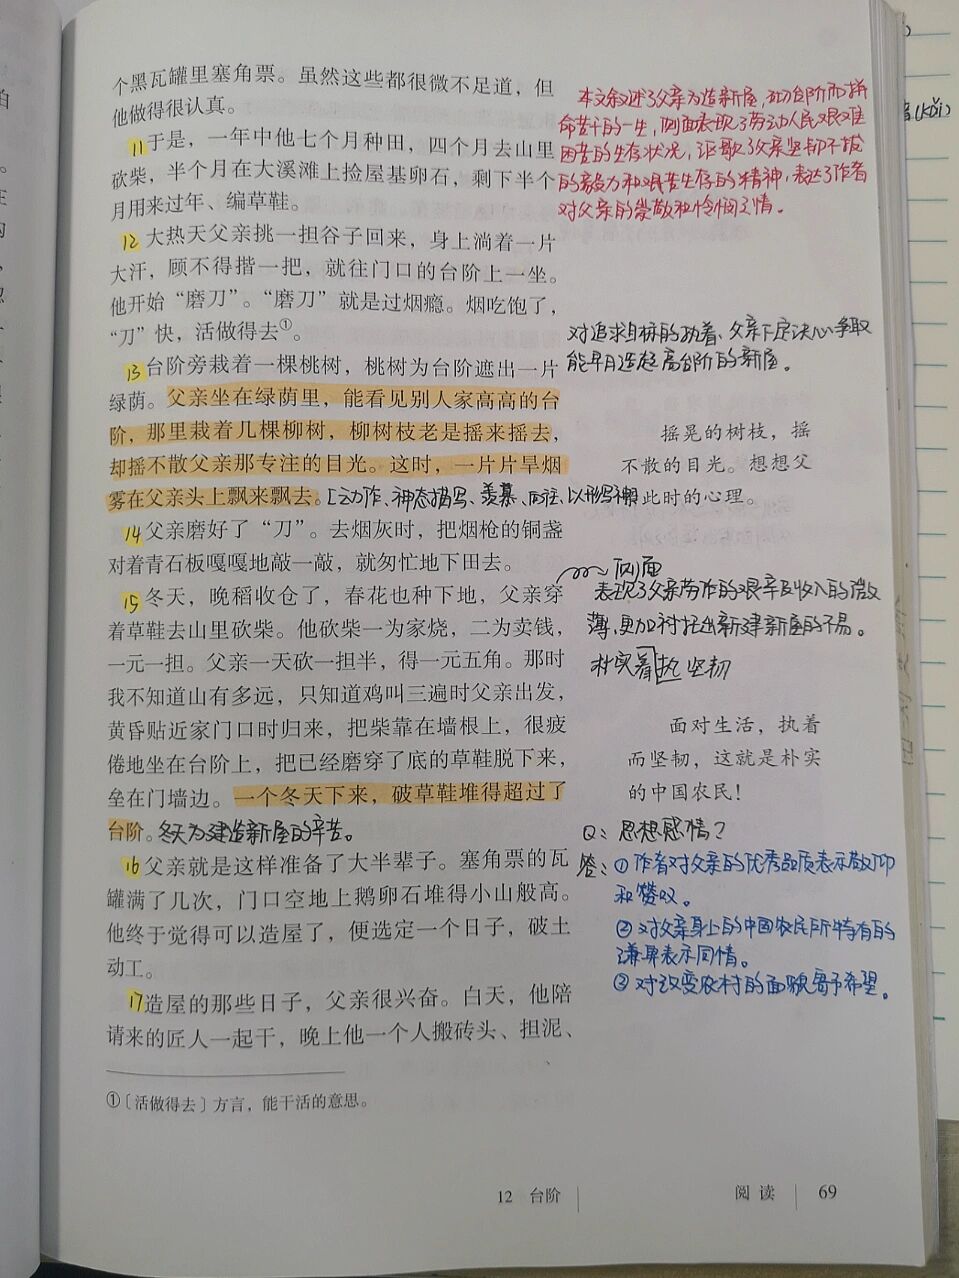 个黑瓦罐里塞角票。虽然这些都很微不足道，但
他做得很认真。
11于是，一年中他七个月种田，四个月去山里
砍柴，半个月在大溪滩上捡屋基卵石，剩下半个
月用来过年、编草鞋。
12大热天父亲挑一担谷子回来，身上淌着一片
大汗，顾不得揩一把，就往门口的台阶上一坐。
他开始“磨刀”。“磨刀”就是过烟瘾。烟吃饱了，
“刀”快，活做得去①。
13台阶旁栽着一棵桃树，桃树为台阶遮出一片
绿荫。父亲坐在绿荫里，能看见别人家高高的台
阶，那里栽着几棵柳树，柳树枝老是摇来摇去，
却摇不散父亲那专注的目光。这时，一片片旱烟
雾在父亲头上飘来飘去。动作、神态描写、羡慕、向往、以形写神
14父亲磨好了“刀”。去烟灰时，把烟枪的铜盏
对着青石板嘎嘎地敲一敲，就匆忙地下田去。
15冬天，晚稻收仓了，春花也种下地，父亲穿
着草鞋去山里砍柴。他砍柴一为家烧，二为卖钱，
一元一担。父亲一天砍一担半，得一元五角。那时
我不知道山有多远，只知道鸡叫三遍时父亲出发，
黄昏贴近家门口时归来，把柴靠在墙根上，很疲
倦地坐在台阶上，把已经磨穿了底的草鞋脱下来，
垒在门墙边。一个冬天下来，破草鞋堆得超过了
台阶。冬天为建造新屋的辛苦。
16父亲就是这样准备了大半辈子。塞角票的瓦
罐满了几次，门口空地上鹅卵石堆得小山般高。
他终于觉得可以造屋了，便选定一个日子，破土
动工。
17造屋的那些日子，父亲很兴奋。白天，他陪
请来的匠人一起干，晚上他一个人搬砖头、担泥、
①〔活做得去〕方言，能干活的意思。
本文叙述了父亲为造新屋，砌台阶而拼
命苦干的一生，侧面表现了劳动人民艰难
困苦的生存状况，讴歌了父亲坚韧不拔
的毅力和艰苦生存的精神，表达了作者
对父亲的崇敬和怜悯之情。
对追求目标的执着、父亲下定决心争取
能早月造起高台阶的新屋。
摇晃的树枝，摇
不散的目光。想想父
亲此时的心理。
侧面
表现了父亲劳作的艰辛及收入的微
薄，更加衬托出新建新屋的不易。
朴实 着执 坚韧
面对生活，执着
而坚韧，这就是朴实
的中国农民！
Q：思想感情？
答：①作者对父亲的优秀品质表示敬仰
和赞叹。
②对父亲身上的中国农民所特有的
谦卑表示同情。
③对改变农村的面貌寄予希望。
12 台阶
阅读 69